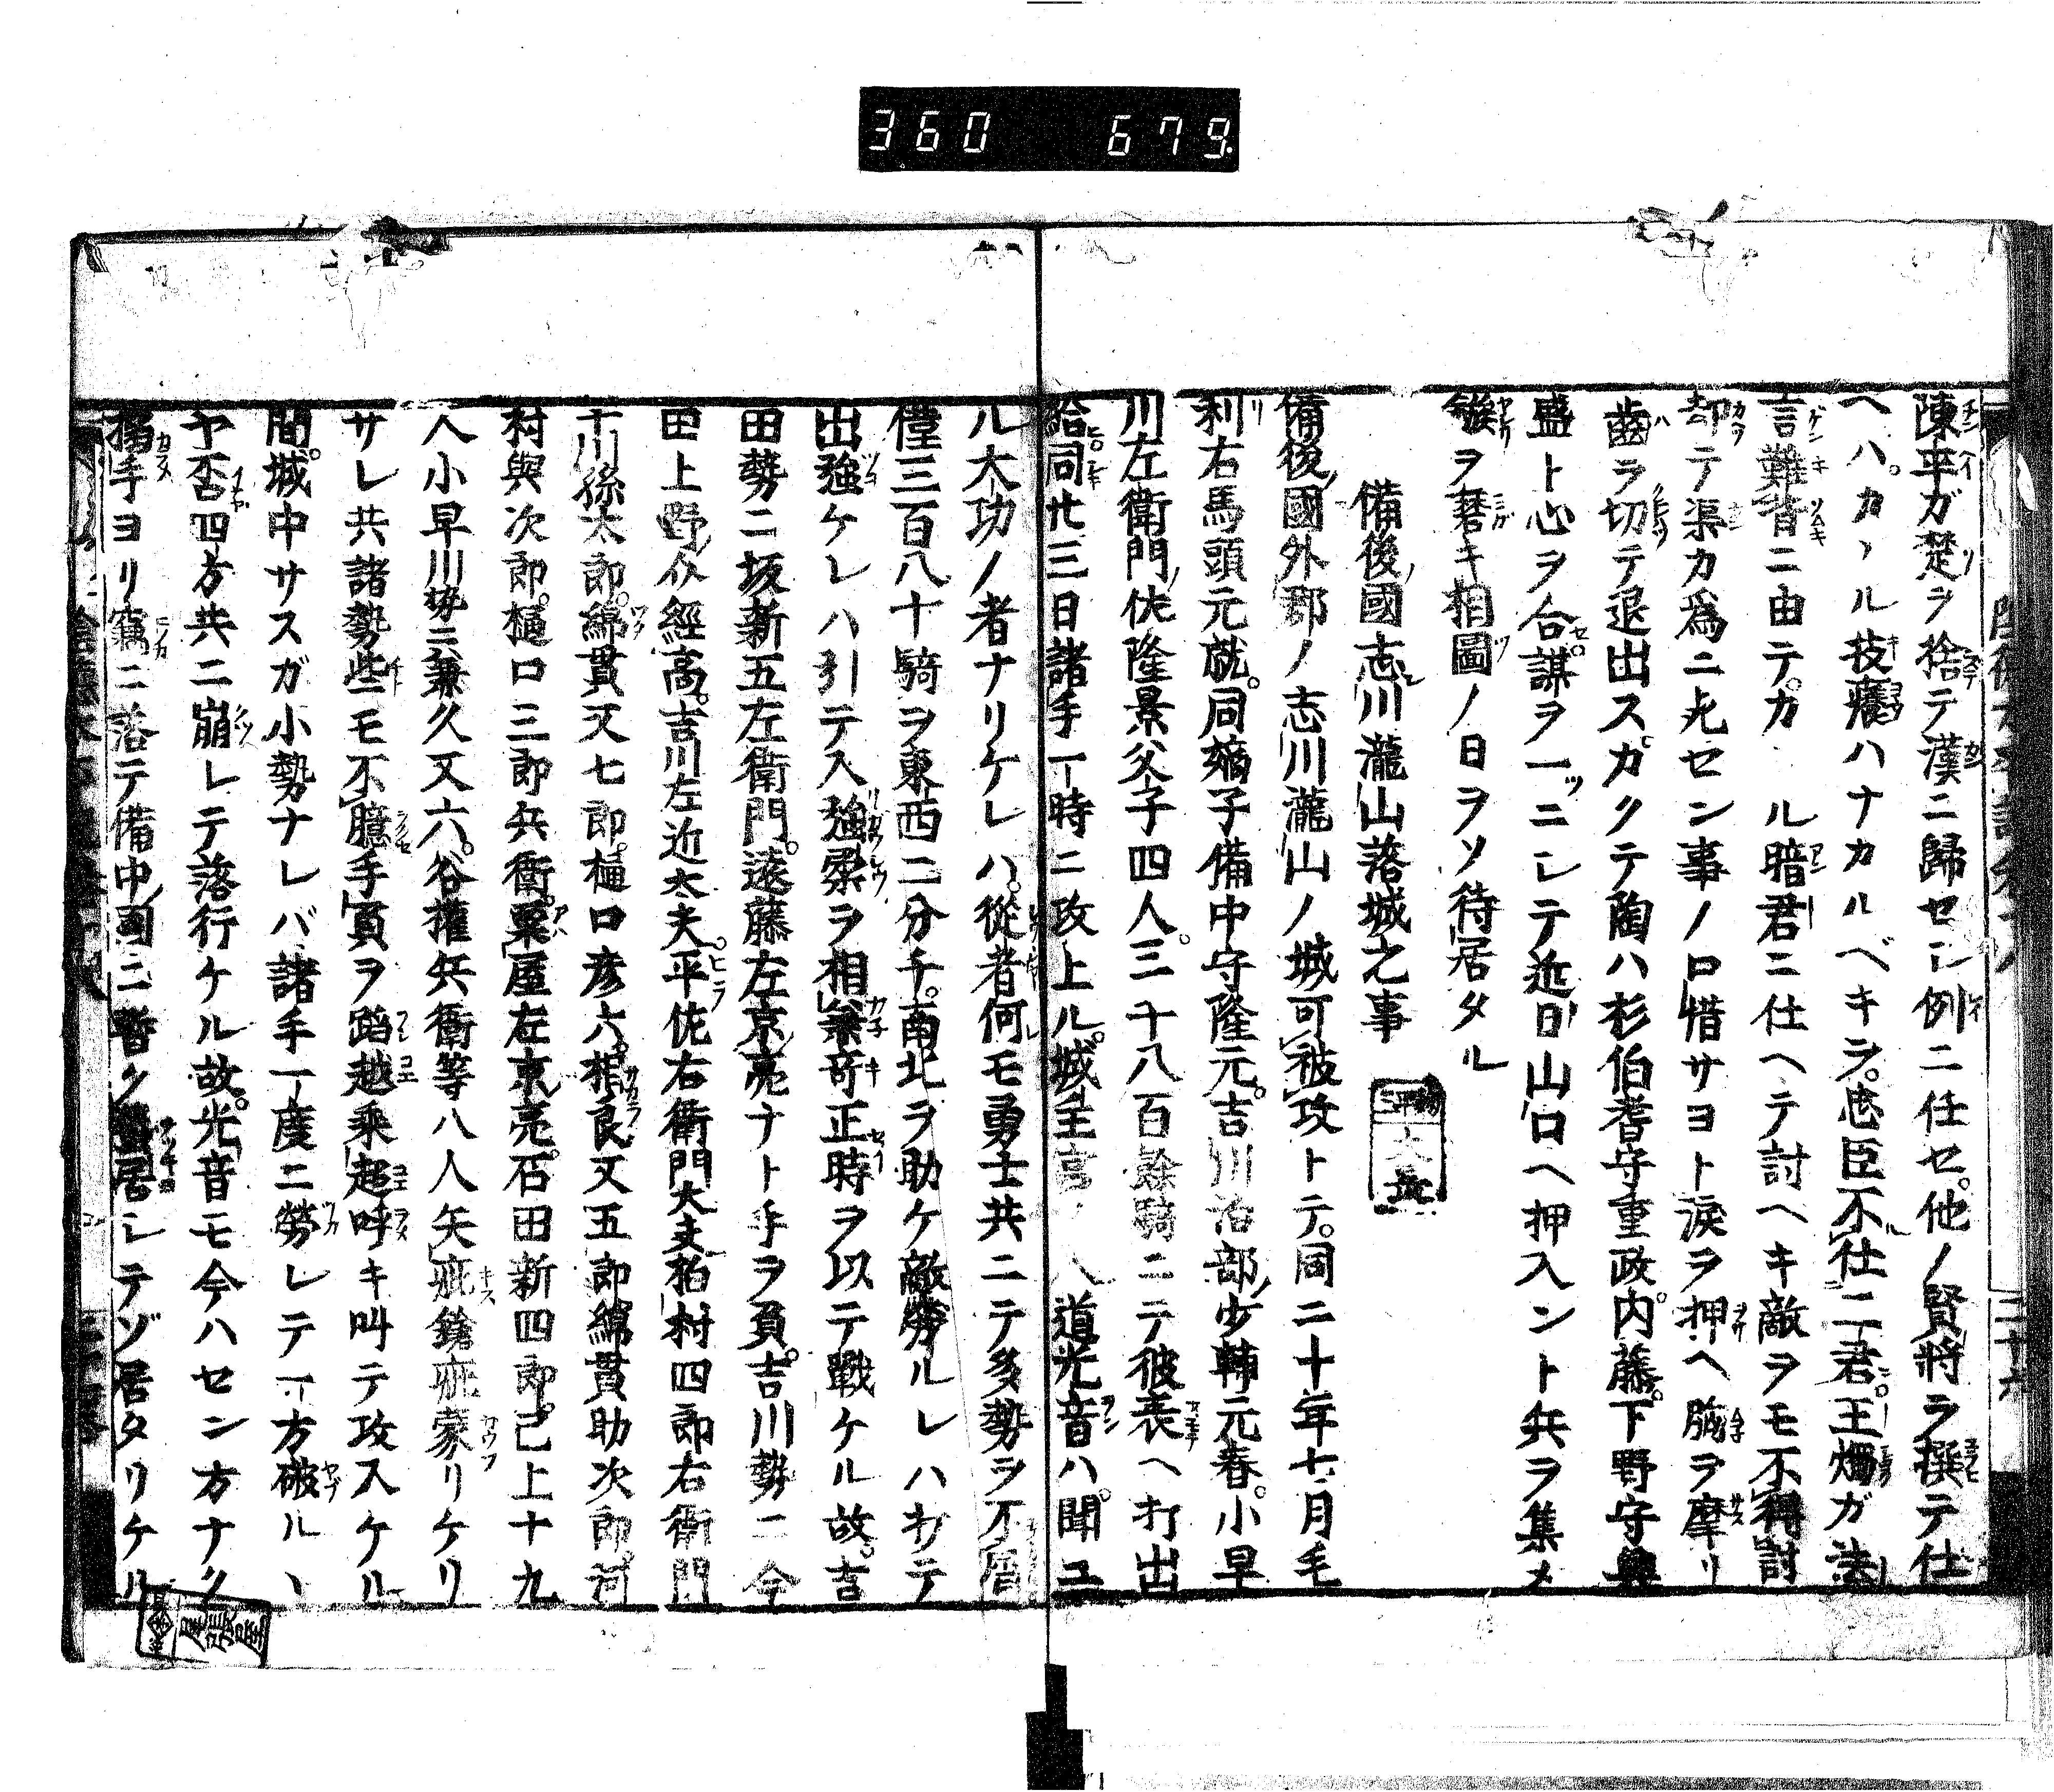 360 679
陳平ガ楚ヲ捨テ漢ニ歸セシ例ニ任セ。他ノ賢將ヲ撰テ仕
ヘハ。カヽル技癢ハナカルベキヲ。忠臣不仕二君。王燭ガ法
言難背ニ由テ。カヽル暗君ニ仕ヘテ討ヘキ敵ヲモ不得討
却テ渠カ爲ニ死セン事ノ口惜サヨト淚ヲ押ヘ胸ヲ摩リ
齒ヲ切テ退出ス。カクテ陶ハ杉伯耆守重政。内藤。下野守興
盛ト心ヲ合。謀ヲ一ツニシテ近日山口ヘ押入ント兵ヲ集メ
鏃ヲ磨キ相圖ノ日ヲソ待居タル
備後國志川瀧山落城之事
備後國外郡ノ志川瀧山ノ城可被攻トテ。同二十年七月毛
利右馬頭元就。同嫡子備中守隆元。吉川治部少輔元春。小早
川左衛門佐隆景父子四人。三千八百餘騎ニテ彼表ヘ打出
給同廿三日諸手一時ニ攻上ル。城主宮ノ入道光音ハ。聞ユ
ル大功ノ者ナリケレハ。從者何モ勇士共ニテ多勢ヲ不屑
僅三百八十騎ヲ東西ニ分チ。南北ヲ助ケ敵勞ルレハ打テ
出強ケレハ引テ入強柔ヲ相兼奇正時ヲ以テ戰ケル故。吉
田勢ニ坂新五左衛門。遠藤左京亮ナト手ヲ負。吉川勢ニ今
田上野介經高。吉川左近大夫。平佐右衛門大夫柏村四郎右衛門
十川孫太郎。綿貫又七郎。樋口彦六。相良又五郎綿貫助次郎。河
村與次郎。樋口三郎兵衛。粟屋左京亮。石田新四郎。已上十九
人小早川勢ニ兼久又六。谷權兵衛等八人矢疵鎗疵蒙リケリ
サレ共諸勢些モ不臆手負ヲ蹈越乘超呼キ叫テ攻入ケル
間。城中サスガ小勢ナレバ諸手一度ニ勞レテ一方破ルヽ
ヤ否四方共ニ崩レテ落行ケル故。光音モ今ハセン方ナク
搦手ヨリ竊ニ落テ備中國ニ暫ク蟄居シテゾ居タリケル